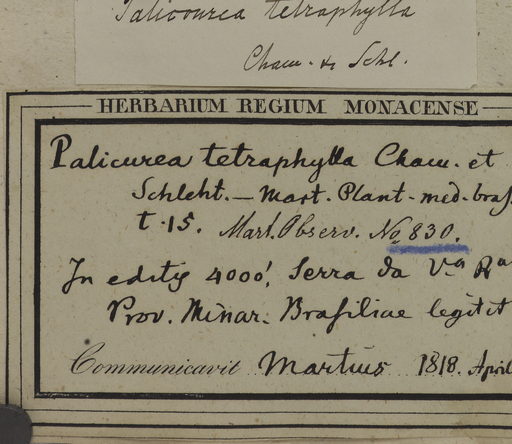 Palicourea tetraphylla
Cham. & Schl.
HERBARIUM REGIUM MONACENSE
Palicurea tetraphylla Cham. et
Schlcht. — Mart. Plant. med. bras.
t. 15. Mart. Observ. No 830.
In editis 4000', Serra da Va Ra
Prov. Minar. Brasiliae legit
Communicavit Martius 1818. April